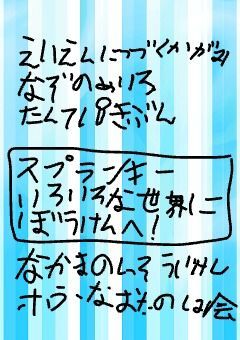 えいえんにつづくかがみ
なぞのめいろ
たんてい きぶん
スプランキー
いろいろな世界に
ぼうけんへ!
なかまのしそうじけん
ホラーなおたのしみ会